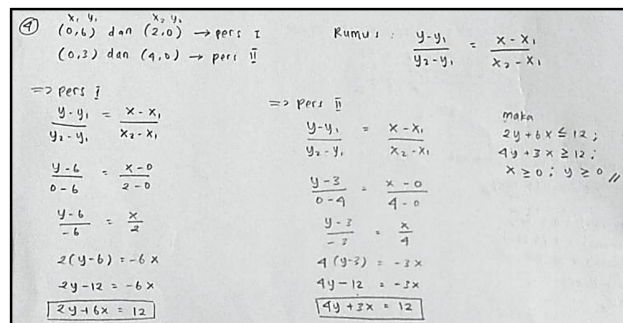 ④ x₁ y₁ x₂ y₂
(0,6) dan (2,0) → pers I
(0,3) dan (4,0) → pers II
Rumus : (y-y₁)/(y₂-y₁) = (x-x₁)/(x₂-x₁)
=> pers I
(y-y₁)/(y₂-y₁) = (x-x₁)/(x₂-x₁)
(y-6)/(0-6) = (x-0)/(2-0)
(y-6)/(-6) = x/2
2(y-6) = -6x
2y-12 = -6x
2y+6x = 12
=> pers II
(y-y₁)/(y₂-y₁) = (x-x₁)/(x₂-x₁)
(y-3)/(0-4) = (x-0)/(4-0)
(y-3)/(-3) = x/4
4(y-3) = -3x
4y-12 = -3x
4y+3x = 12
maka
2y+6x ≤ 12 ;
4y+3x ≥ 12 ;
x ≥ 0 ; y ≥ 0 //